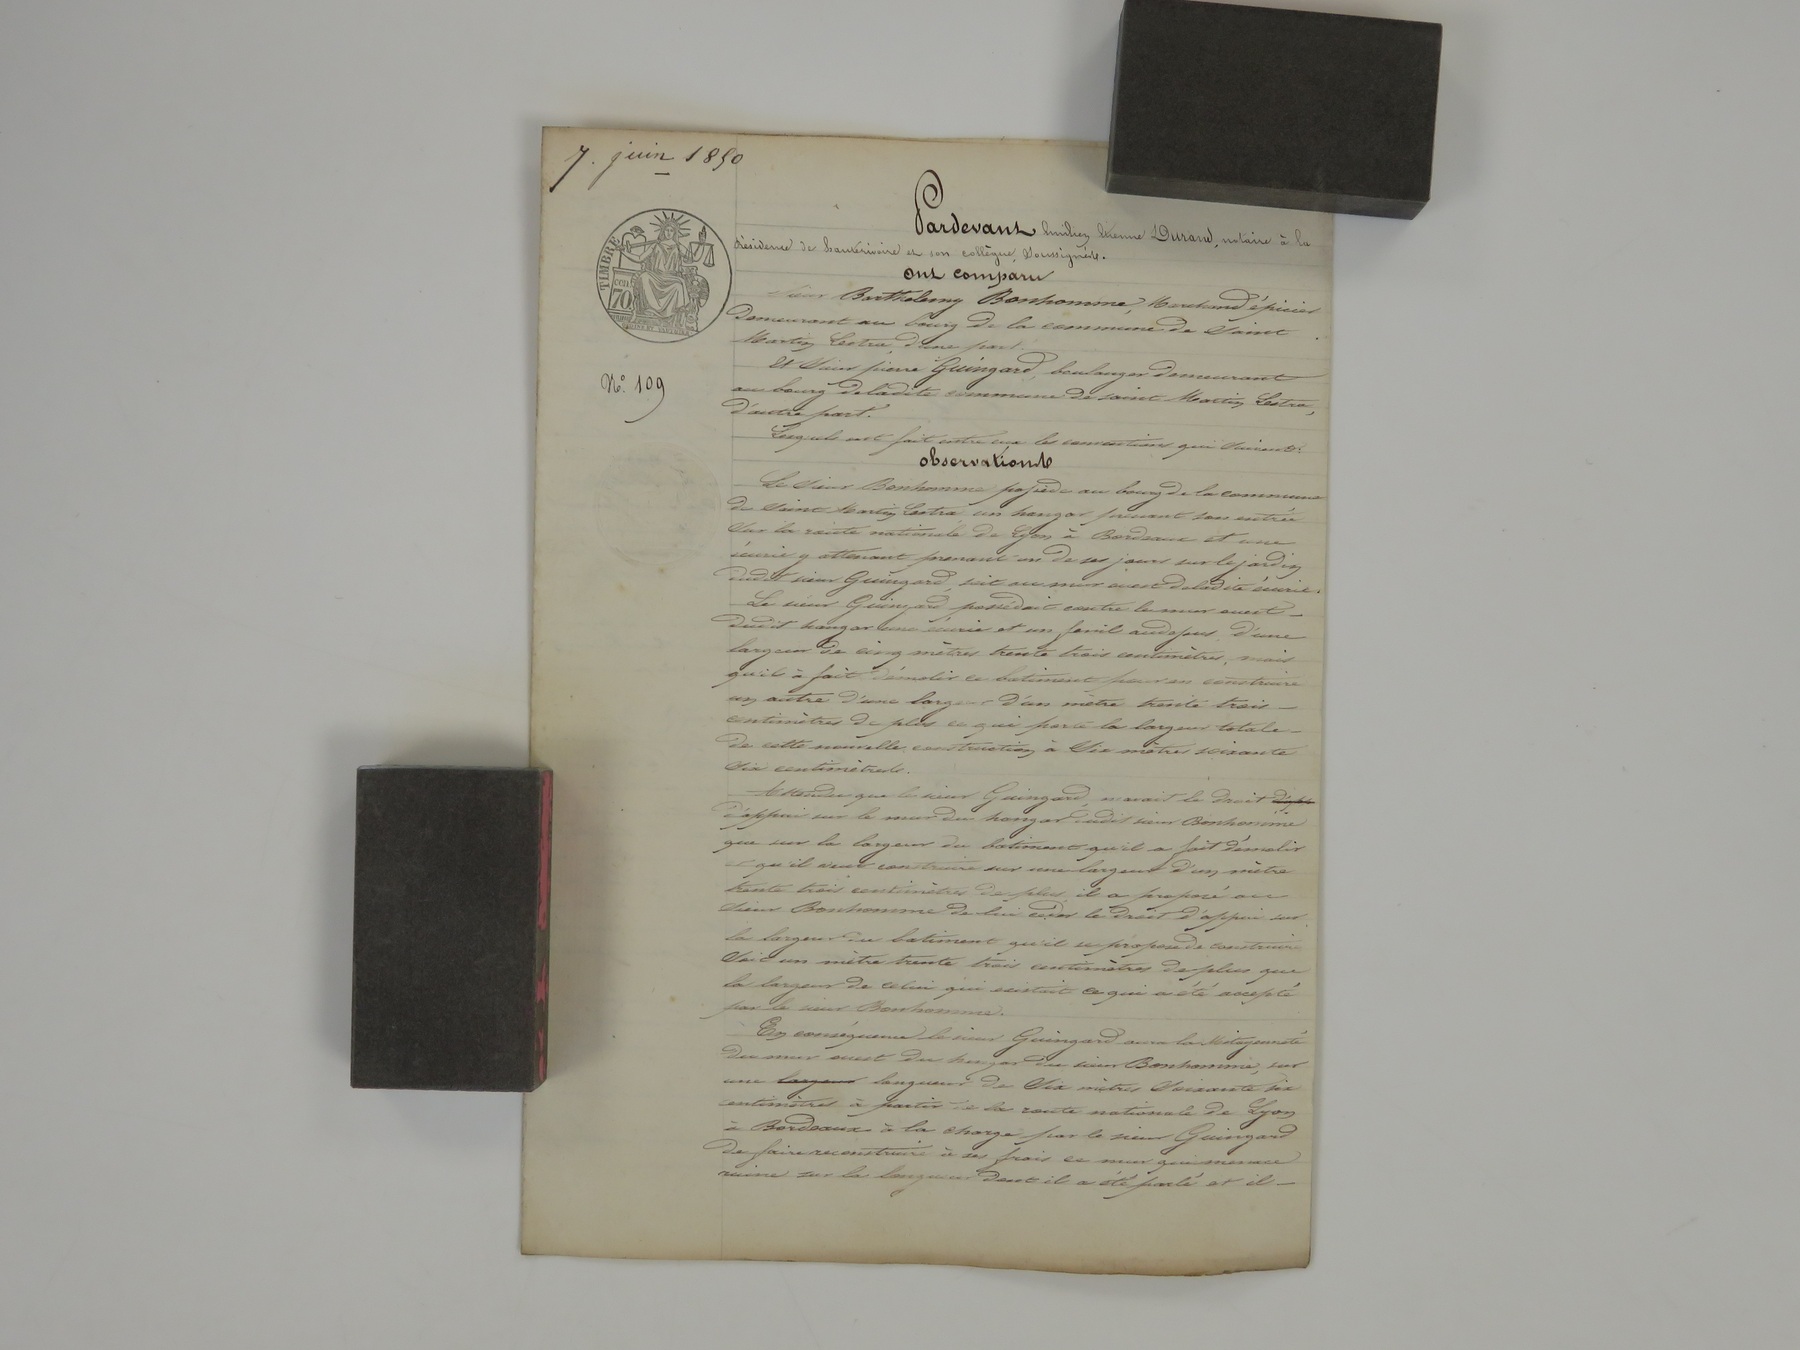 7. juin 1850
Pardevant Emilien Etienne Durand, notaire à la
TIMBRE
résidence de et son collègue, soussignés.
ont comparu
cen
70
Sieur Barthelemy Bonhomme, Marchand épicier
Demeurant au bourg de la commune de Saint
Martin Lestra d'une part.
Et Sieur pierre Guingard, boulanger demeurant
N° 109
au bourg de ladite commune de saint Martin Lestra,
d'autre part.
Lesquels ont fait entre eux les conventions qui suivent:
observations
Le Sieur Bonhomme possède au bourg de la commune
de Saint Martin Lestra un hangar prenant son entrée
Sur la route nationale de Lyon à Bordeaux et une
écurie y attenant prenant un de ses jours sur le jardin
dudit sieur Guingard, soit au mur ouest de ladite écurie.
Le sieur Guingard possédait contre le mur ouest
dudit hangar une écurie et un fenil audessus, d'une
largeur de cinq mètres trente trois centimètres, mais
qu'il à fait démolir ce batiment pour en construire
un autre d'une largeur d'un mètre trente trois
centimètres de plus ce qui porte la largeur totale
de cette nouvelle construction à Six mètres soixante
Six centimètres.
Attendu que le sieur Guingard n'avait le droit
d'appui sur le mur du hangar dudit sieur Bonhomme
que sur la largeur du batiment qu'il a fait démolir
et qu'il veut construire sur une largeur d'un mètre
trente trois centimètres de plus, il a proposé au
sieur Bonhomme de lui céder le droit d'appui sur
la largeur du batiment qu'il se propose de construire
Soit un mètre trente trois centimètres de plus que
la largeur de celui qui existait ce qui a été accepté
par le sieur Bonhomme.
En conséquence le sieur Guingard aura la Mitoyenneté
du mur ouest du hangar du sieur Bonhomme, sur
une largeur longueur de Six mètres Soixante Six
centimètres à partir de la route nationale de Lyon
à Bordeaux à la charge par le sieur Guingard
de faire reconstruire à ses frais ce mur qui menace
ruine sur la longueur dont il a été parlé et il